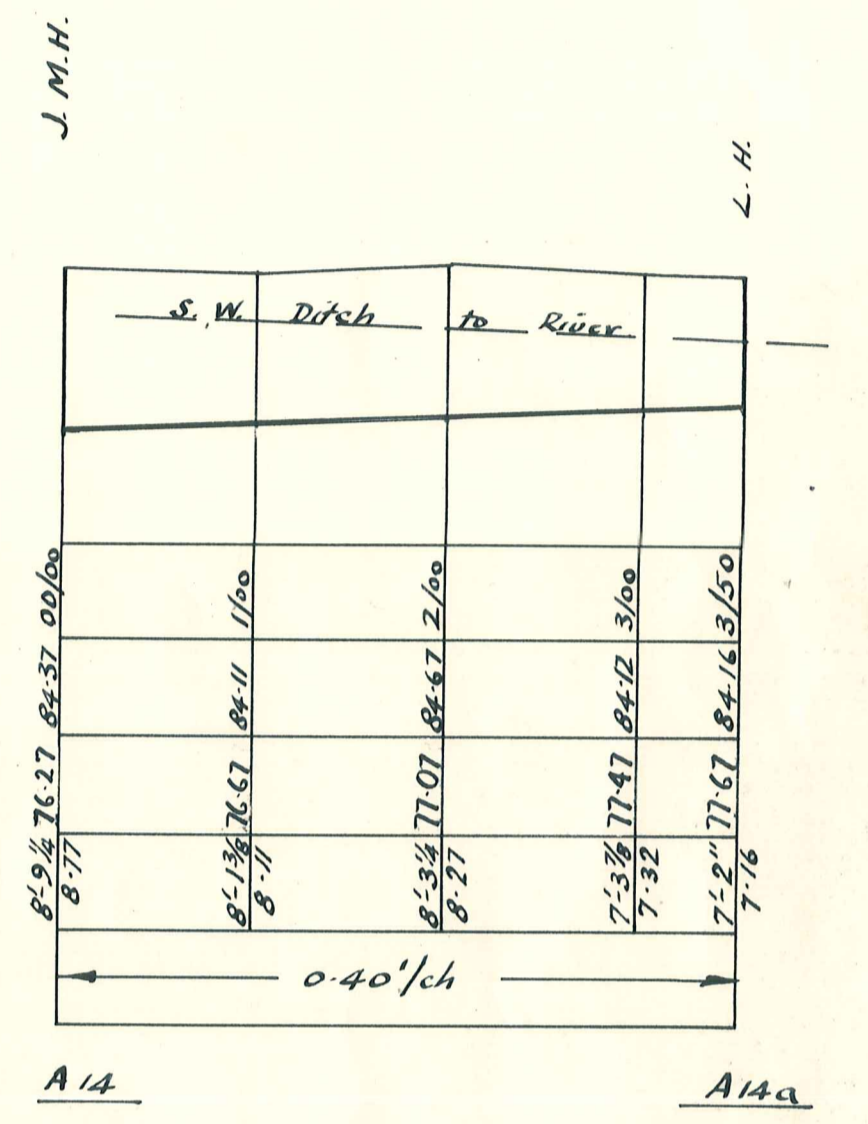 J. M.H.
L. H.
S. W. Ditch to River
00/00 1/00 2/00 3/00 3/50
84·37 84·11 84·67 84·12 84·16
76·27 76·67 77·07 77·47 77·67
8'-9¼" 8'-1⅜" 8'-3¼" 7'-3⅞" 7'-2"
8·77 8·11 8·27 7·32 7·16
0·40'/ch
A14 A14a